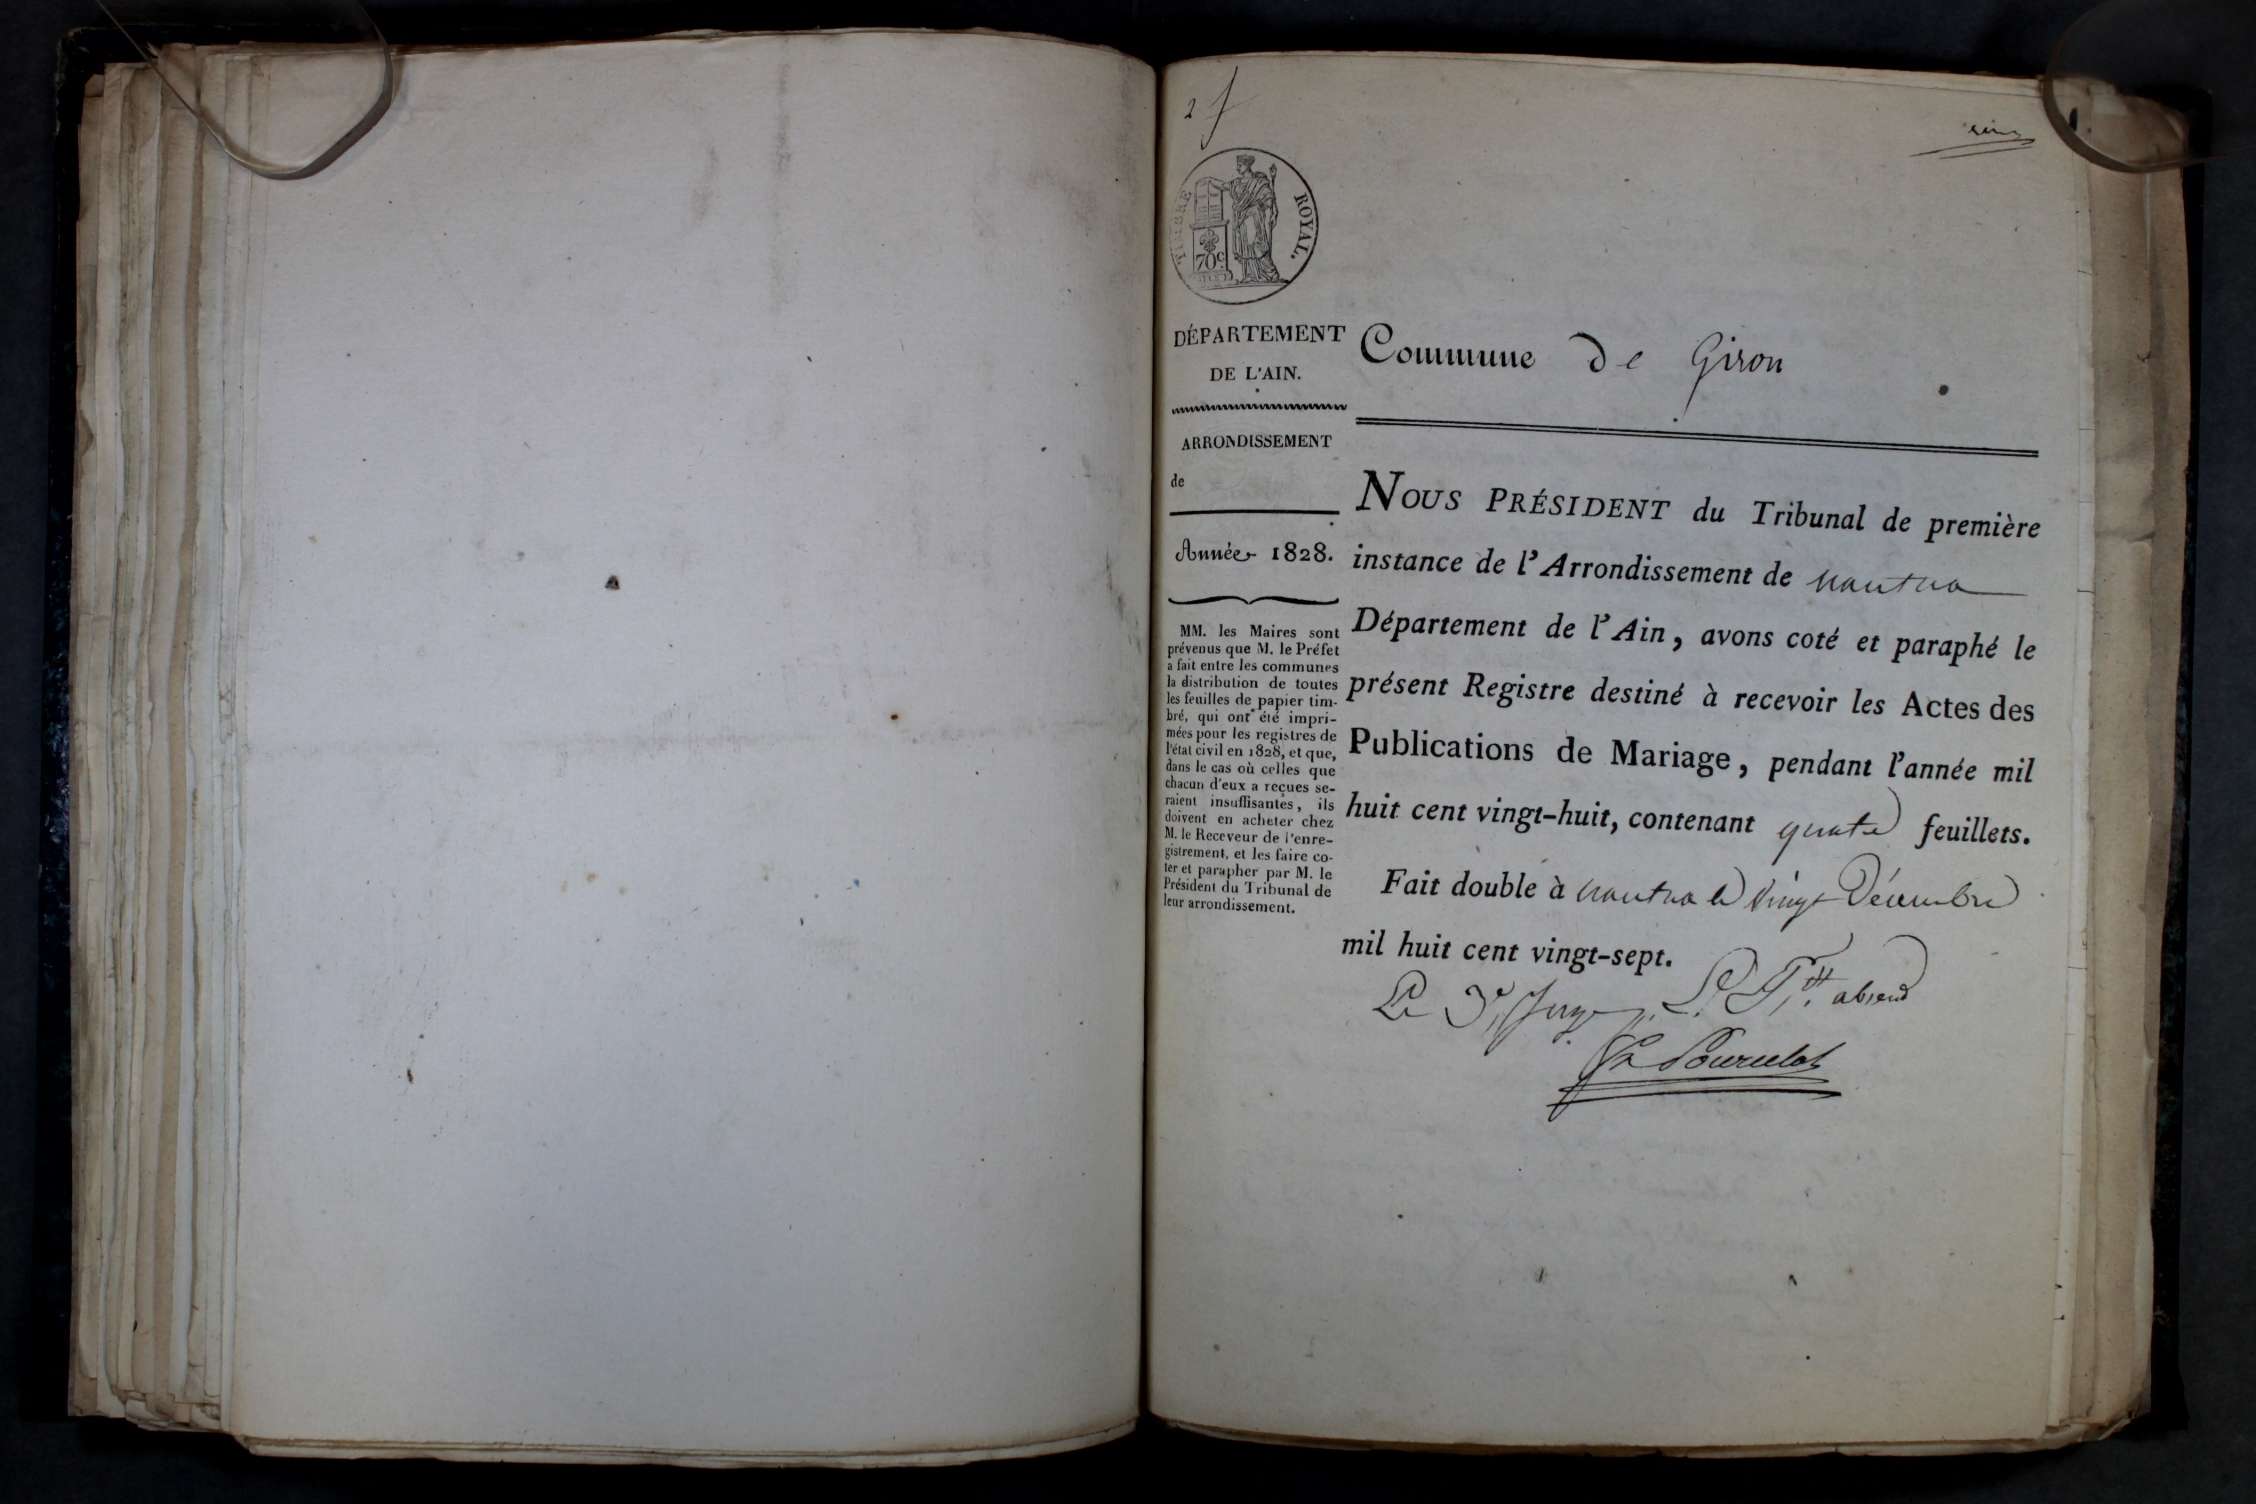 2 f
TIMBRE ROYAL.
70c.
DÉPARTEMENT
DE L'AIN.
ARRONDISSEMENT
de
Année 1828.
MM. les Maires sont
prévenus que M. le Préfet
a fait entre les communes
la distribution de toutes
les feuilles de papier tim-
bré, qui ont été impri-
mées pour les registres de
l'état civil en 1828, et que,
dans le cas où celles que
chacun d'eux a reçues se-
raient insuffisantes, ils
doivent en acheter chez
M. le Receveur de l'enre-
gistrement, et les faire co-
ter et parapher par M. le
Président du Tribunal de
leur arrondissement.
Commune de Giron
NOUS PRÉSIDENT du Tribunal de première
instance de l'Arrondissement de nantua
Département de l'Ain, avons coté et paraphé le
présent Registre destiné à recevoir les Actes des
Publications de Mariage, pendant l'année mil
huit cent vingt-huit, contenant quatre feuillets.
Fait double à nantua le vingt Décembre
mil huit cent vingt-sept.
Le Juge, absent